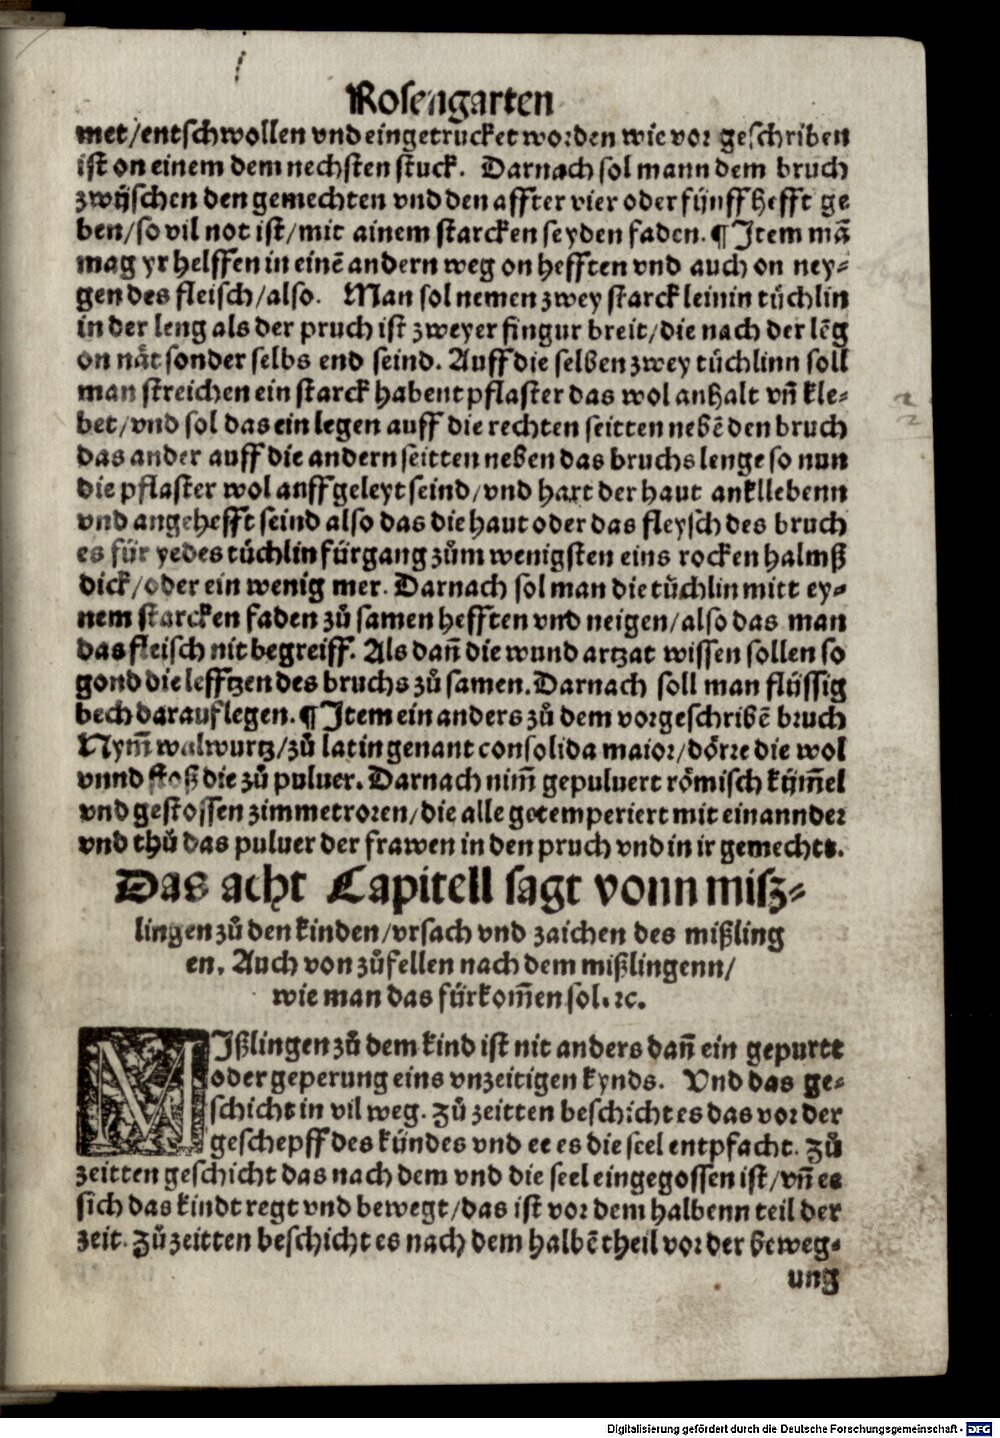 Rosengarten
met/entschwollen vnd eingetrucket worden wie vor geschriben
ist on einem dem nechsten stuck. Darnach sol mann dem bruch
zwÿschen den gemechten vnd den affter vier oder fÿnff hefft ge
ben/so vil not ist/mit ainem starcken seyden faden. ¶ Item mã
mag yr helffen in einẽ andern weg on hefften vnd auch on ney⸗
gen des fleisch/also. Man sol nemen zwey starck leinin tüchlin
in der leng als der pruch ist zweyer fingur breit/die nach der lẽg
on nät sonder selbs end seind. Auff die selben zwey tüchlinn soll
man streichen ein starck habent pflaster das wol anhalt vñ kle⸗
bet/vnd sol das ein legen auff die rechten seitten nebẽ den bruch
das ander auff die andern seitten neben das bruchs lenge so nun
die pflaster wol auff geleyt seind/vnd hart der haut ankllebenn
vnd angehefft seind also das die haut oder das fleysch des bruch
es für yedes tüchlin fürgang zům wenigsten eins rocken halmß
dick/oder ein wenig mer. Darnach sol man die tüchlin mitt ey⸗
nem starcken faden zů samen hefften vnd neigen/also das man
das fleisch nit begreiff. Als dañ die wund artzat wissen sollen so
gond die lefftzen des bruchs zů samen. Darnach soll man flüssig
bech darauf legen. ¶ Item ein anders zů dem vorgeschribẽ bruch
Nym̃ walwurtz/zů latin genant consolida maior/dörre die wol
vnnd stoß die zů puluer. Darnach nim̃ gepuluert römisch kÿm̃el
vnd gestossen zimmetroren/die alle getemperiert mit einannder
vnd thů das puluer der frawen in den pruch vnd in ir gemechte.
Das acht Capitell sagt vonn misz⸗
lingen zů den kinden/vrsach vnd zaichen des mißling
en. Auch von zůfellen nach dem mißlingenn/
wie man das fürkom̃en sol. ꝛc.
MIßlingen zů dem kind ist nit anders dañ ein gepurtt
oder geperung eins vnzeitigen kynds. Vnd das ge⸗
schicht in vil weg. Zů zeitten beschicht es das vor der
geschepff des kündes vnd ee es die seel entpfacht. Zů
zeitten geschicht das nach dem vnd die seel eingegossen ist/vñ es
sich das kindt regt vnd bewegt/das ist vor dem halbenn teil der
zeit. Zů zeitten beschicht es nach dem halbẽ theil vor der beweg⸗
ung
Digitalisierung gefördert durch die Deutsche Forschungsgemeinschaft - DFG